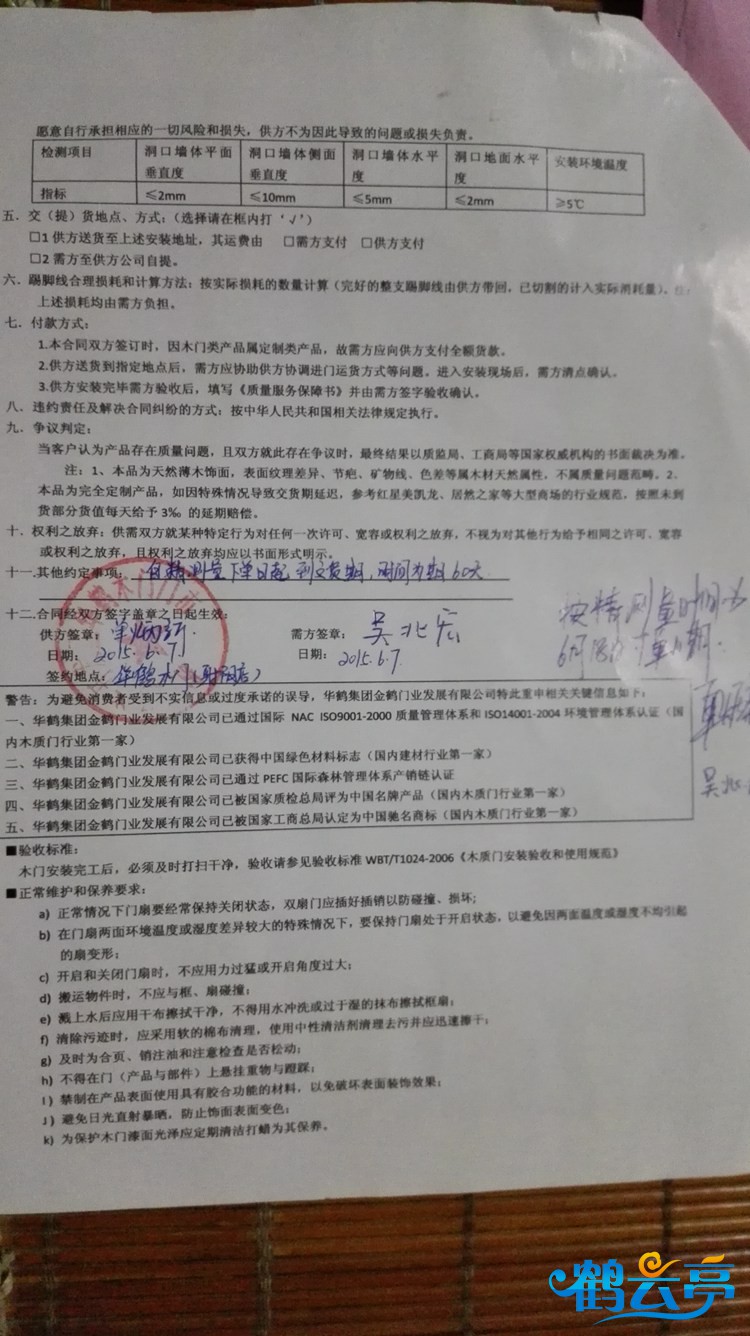 愿意自行承担相应的一切风险和损失，供方不为因此导致的问题或损失负责。
检测项目 洞口墙体平面垂直度 洞口墙体侧面垂直度 洞口墙体水平度 洞口地面水平度 安装环境温度
指标 ≤2mm ≤10mm ≤5mm ≤2mm ≥5℃
五．交（提）货地点、方式：（选择请在框内打‘√’）
□1 供方送货至上述安装地址，其运费由 □需方支付 □供方支付
□2 需方至供方公司自提。
六．踢脚线合理损耗和计算方法：按实际损耗的数量计算（完好的整支踢脚线由供方带回，已切割的计入实际消耗量）。
上述损耗均由需方负担。
七．付款方式：
1.本合同双方签订时，因木门类产品属定制类产品，故需方应向供方支付全额货款。
2.供方送货到指定地点后，需方应协助供方协调进门运货方式等问题。进入安装现场后，需方清点确认。
3.供方安装完毕需方验收后，填写《质量服务保障书》并由需方签字验收确认。
八．违约责任及解决合同纠纷的方式：按中华人民共和国相关法律规定执行。
九．争议判定：
当客户认为产品存在质量问题，且双方就此存在争议时，最终结果以质监局、工商局等国家权威机构的书面裁决为准。
注：1、本品为天然薄木饰面，表面纹理差异、节疤、矿物线、色差等属木材天然属性，不属质量问题范畴。2、
本品为完全定制产品，如因特殊情况导致交货期延迟，参考红星美凯龙、居然之家等大型商场的行业规范，按照未到
货部分货值每天给予3‰ 的延期赔偿。
十．权利之放弃：供需双方就某种特定行为对任何一次许可、宽容或权利之放弃，不视为对其他行为给予相同之许可、宽容
或权利之放弃，且权利之放弃均应以书面形式明示。
十一.其他约定事项： 自精测量下单日起 到交货期，时间为期60天
十二.合同经双方签字盖章之日起生效：
供方签章： 需方签章： 吴北宏
日期： 2015.6.7 日期： 2015.6.7
签约地点： 华鹤木门
按精测量时间为
6月18日
警告：为避免消费者受到不实信息或过度承诺的误导，华鹤集团金鹤门业发展有限公司特此重申相关关键信息如下：
一、华鹤集团金鹤门业发展有限公司已通过国际 NAC ISO9001-2000 质量管理体系和 ISO14001-2004 环境管理体系认证（国
内木质门行业第一家）
二、华鹤集团金鹤门业发展有限公司已获得中国绿色材料标志（国内建材行业第一家）
三、华鹤集团金鹤门业发展有限公司已通过 PEFC 国际森林管理体系产销链认证
四、华鹤集团金鹤门业发展有限公司已被国家质检总局评为中国名牌产品（国内木质门行业第一家）
五、华鹤集团金鹤门业发展有限公司已被国家工商总局认定为中国驰名商标（国内木质门行业第一家）
■验收标准：
木门安装完工后，必须及时打扫干净，验收请参见验收标准 WBT/T1024-2006《木质门安装验收和使用规范》
■正常维护和保养要求：
a) 正常情况下门扇要经常保持关闭状态，双扇门应插好插销以防碰撞、损坏；
b) 在门扇两面环境温度或湿度差异较大的特殊情况下，要保持门扇处于开启状态，以避免因两面温度或湿度不均引起
的扇变形；
c) 开启和关闭门扇时，不应用力过猛或开启角度过大；
d) 搬运物件时，不应与框、扇碰撞；
e) 溅上水后应用干布擦拭干净，不得用水冲洗或过于湿的抹布擦拭框扇；
f) 清除污迹时，应采用软的棉布清理，使用中性清洁剂清理去污并应迅速擦干；
g) 及时为合页、销注油和注意检查是否松动；
h) 不得在门（产品与部件）上悬挂重物与蹬踩；
I) 禁制在产品表面使用具有胶合功能的材料，以免破坏表面装饰效果；
J) 避免日光直射暴晒，防止饰面表面变色；
k) 为保护木门漆面光泽应定期清洁打蜡为其保养。
鹤云亭